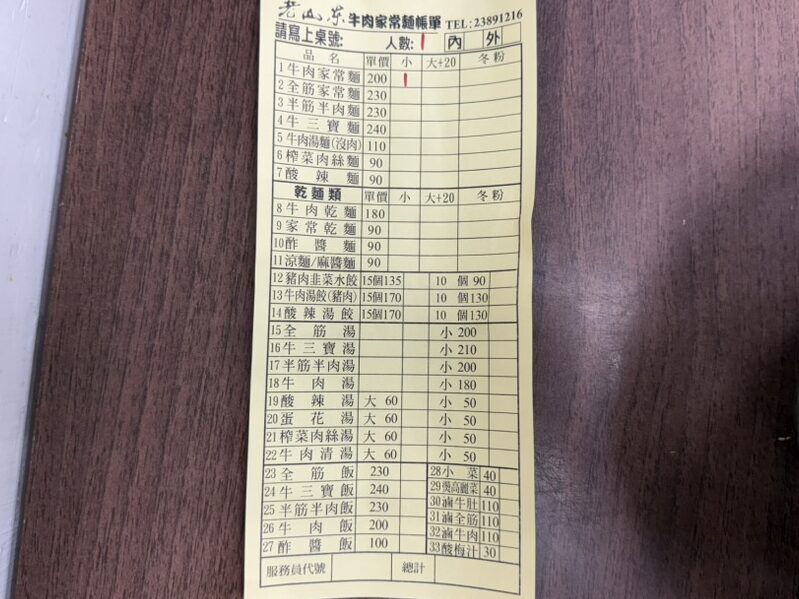 老山东 牛肉家常麵帳單 TEL:23891216
請寫上桌號: 人數:1 內 外
品名 單價 小 大+20 冬粉
1 牛肉家常麵 200 1
2 全筋家常麵 230
3 半筋半肉麵 230
4 牛三寶麵 240
5 牛肉湯麵(沒肉) 110
6 榨菜肉絲麵 90
7 酸辣麵 90
乾麵類 單價 小 大+20 冬粉
8 牛肉乾麵 180
9 家常乾麵 90
10 酢醬麵 90
11 涼麵/麻醬麵 90
12 豬肉韭菜水餃 15個135 10個 90
13 牛肉湯餃(豬肉) 15個170 10個130
14 酸辣湯餃 15個170 10個130
15 全筋湯 小 200
16 牛三寶湯 小 210
17 半筋半肉湯 小 200
18 牛肉湯 小 180
19 酸辣湯 大 60 小 50
20 蛋花湯 大 60 小 50
21 榨菜肉絲湯 大 60 小 50
22 牛肉清湯 大 60 小 50
23 全筋飯 230 28 小菜 40
24 牛三寶飯 240 29 燙高麗菜 40
25 半筋半肉飯 230 30 滷牛肚 110
26 牛肉飯 200 31 滷全筋 110
27 酢醬飯 100 32 滷牛肉 110
33 酸梅汁 30
服務員代號 總計